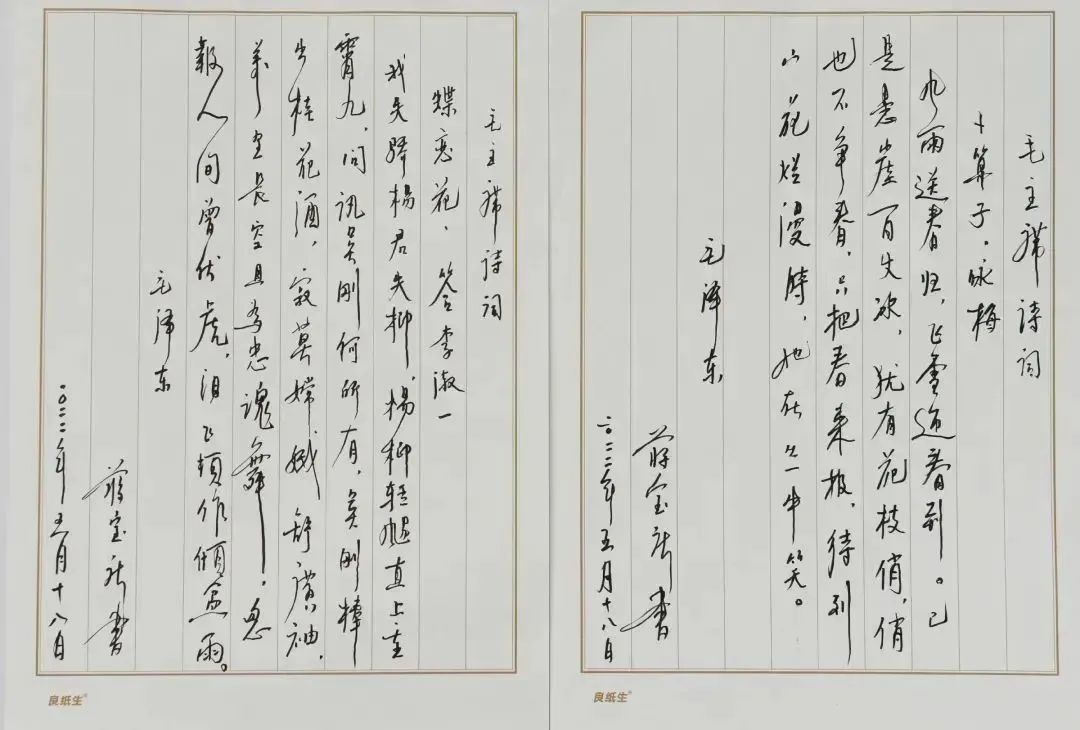 毛主席诗词
卜算子。咏梅
风雨送春归,飞雪迎春到。已
是悬崖百丈冰,犹有花枝俏,俏
也不争春,只把春来报,待到
山花烂漫時,她在丛中笑。
毛泽东
蒋宝书
二〇二二年五月十八日
良纸生
毛主席诗词
蝶恋花、答李淑一
我失骄楊君失柳,楊柳轻飏直上重
霄九,问讯吴刚何所有,吴刚捧
出桂花酒,寂寞嫦娥舒廣袖,
万里长空且为忠魂舞。忽
報人间曾伏虎,泪飞顿作倾盆雨。
毛泽东
蒋宝书
二〇二二年五月十八日
良纸生